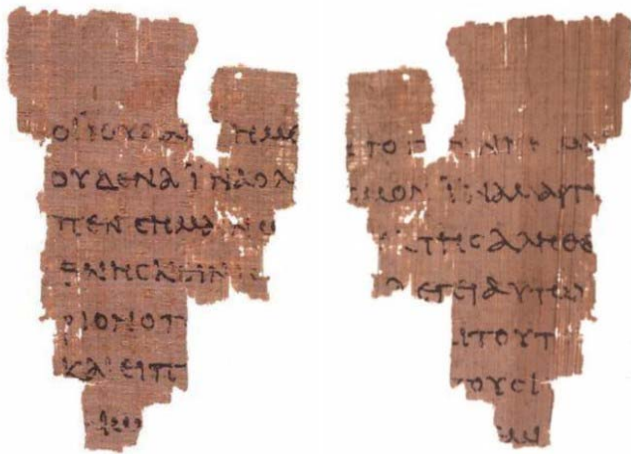 ΟΙ ΙΟΥΔΑΙ ΗΜΕ
ΟΥΔΕΝΑ ΪΝΑ Ο Λ
ΠΕΝ ϹΗΜΑΙΝΩ
ΘΝΗϹΚΕΙΝ
ΡΙΟΝ Ο Π
ΚΑΙ ΕΙΠ
ϹΜΟΝ ΪΝΑ ΜΑΡΤΥ
ΤΗϹ ΑΛΗΘΕ
ΛΕΓΕΙ ΑΥΤΩ
ΑΙ ΤΟΥΤ
ΤΟΥϹ Ι